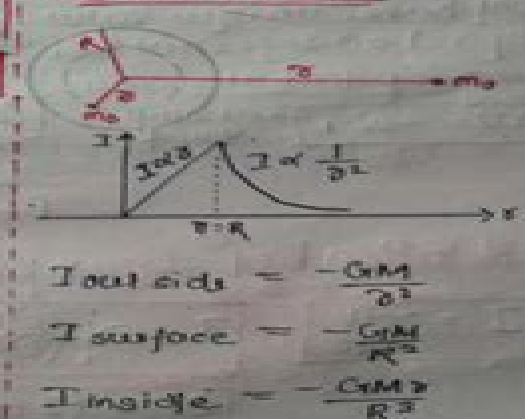 R
r
r
m₀
m₀
I
I ∝ r
I ∝ 1/r²
r
r = R
I out side = -GM/r²
I surface = -GM/R²
I inside = -GMr/R³